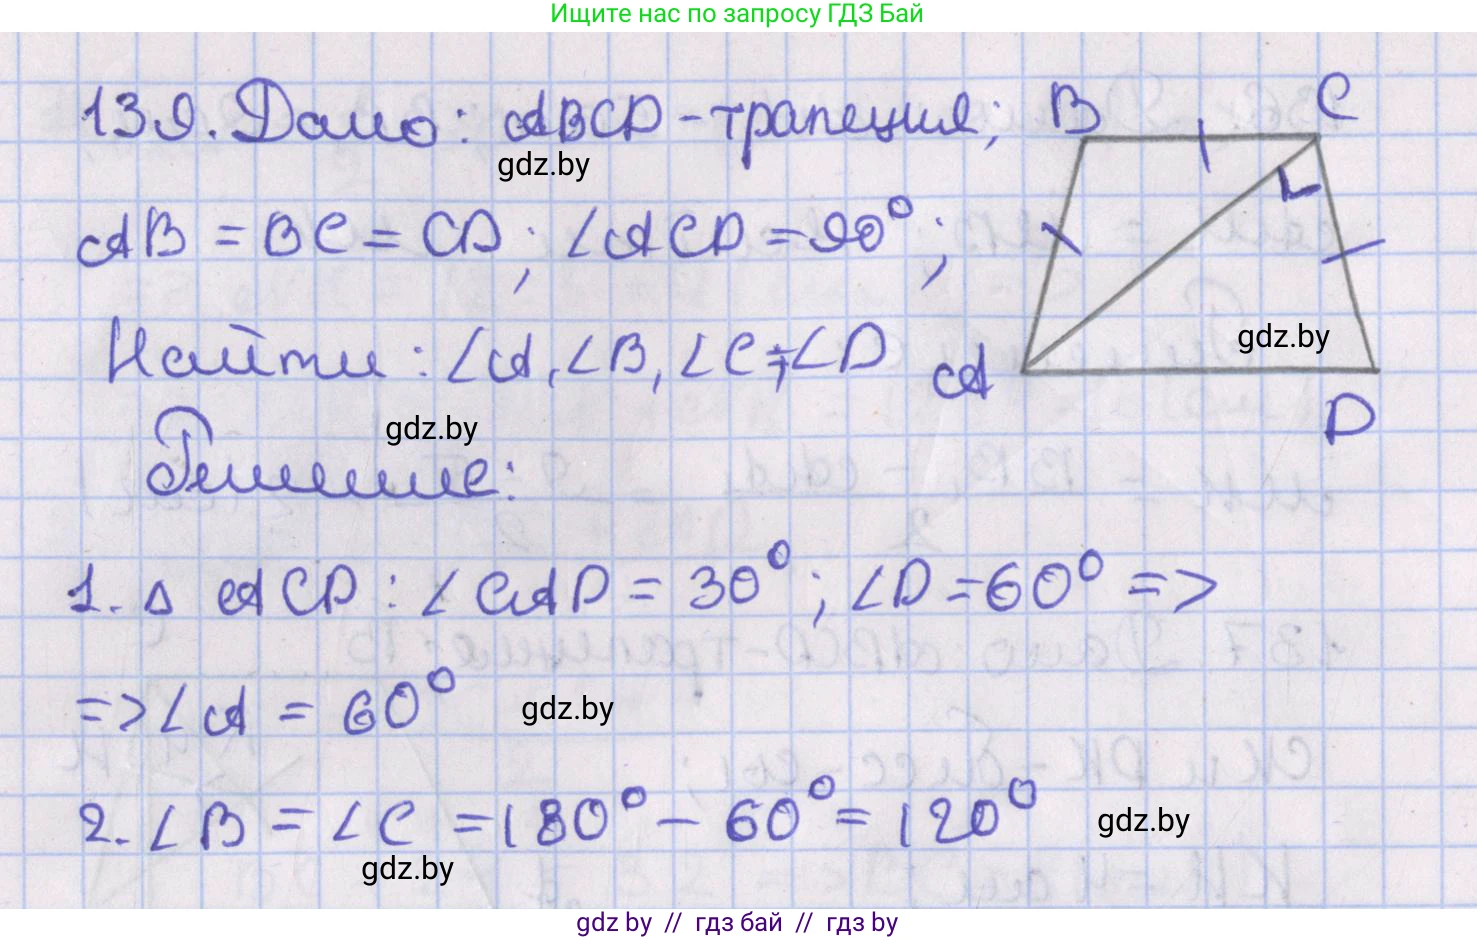 Ищите нас по запросу ГДЗ Бай
139. Дано: ABCD - трапеция;
gdz.by
AB = BC = CD; ∠ACD = 90°;
Найти: ∠A, ∠B, ∠C, ∠D
B
C
A
D
gdz.by
gdz.by
Решение:
1. Δ ACD: ∠CAD = 30°; ∠D = 60° =>
=> ∠A = 60°
gdz.by
2. ∠B = ∠C = 180° - 60° = 120°
gdz.by
gdz.by
gdz by // гдз бай // гдз by